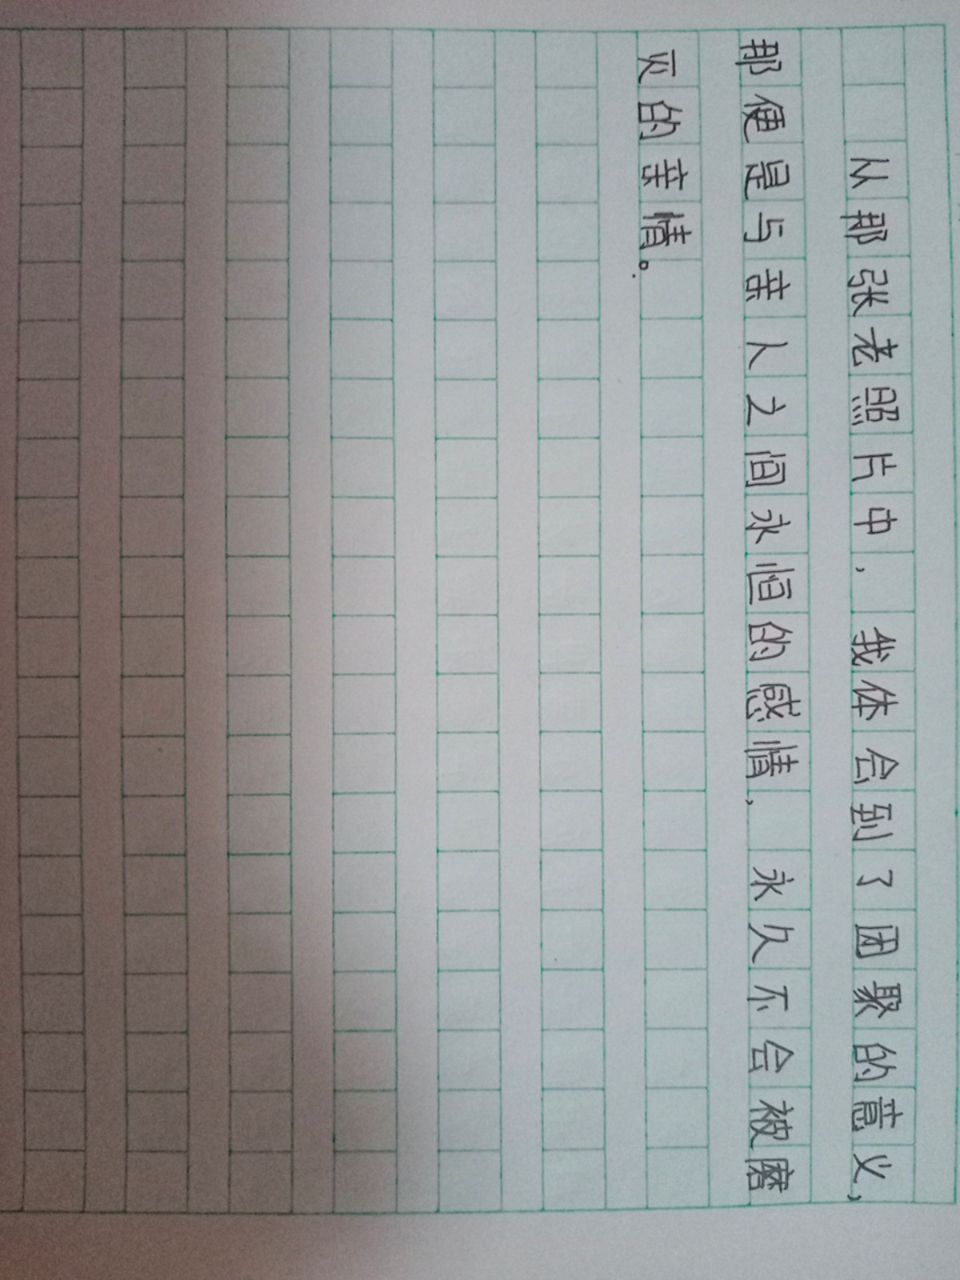 从那张老照片中，我体会到了团聚的意义，
那便是与亲人之间永恒的感情，永久不会被磨
灭的亲情。